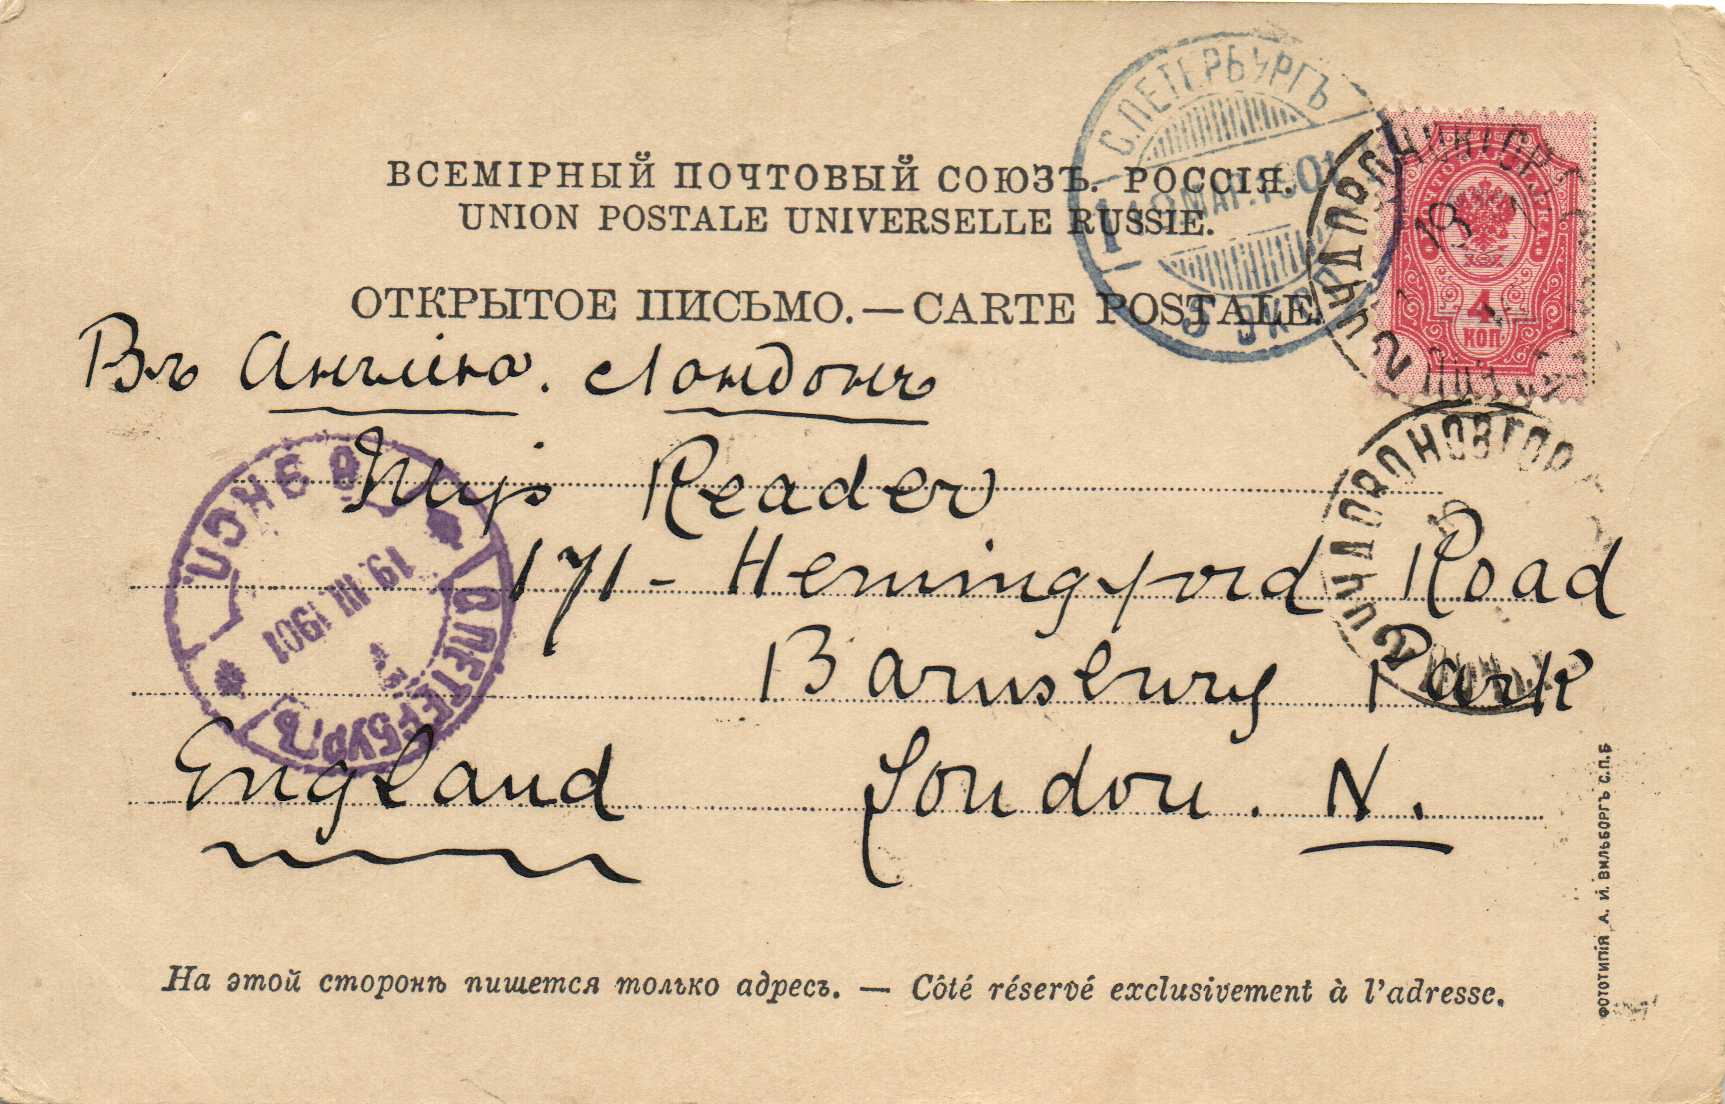 ВСЕМІРНЫЙ ПОЧТОВЫЙ СОЮЗЪ. РОССІЯ.
UNION POSTALE UNIVERSELLE RUSSIE.
ОТКРЫТОЕ ПИСЬМО.—CARTE POSTALE.
С.ПЕТЕРБУРГЪ
МАР. 1901
ПОЧТОВАЯ МАРКА.
4
КОП.
Въ Англію. Лондонъ
Miss Reader
171- Hemingford Road
Barnsbury Park
England London. N.
С.ПЕТЕРБУРГЪ
19 III 1901
На этой сторонѣ пишется только адресъ. — Côté réservé exclusivement à l'adresse.
ФОТОТИПІЯ А. И. ВИЛЬБОРГЪ С.П.Б